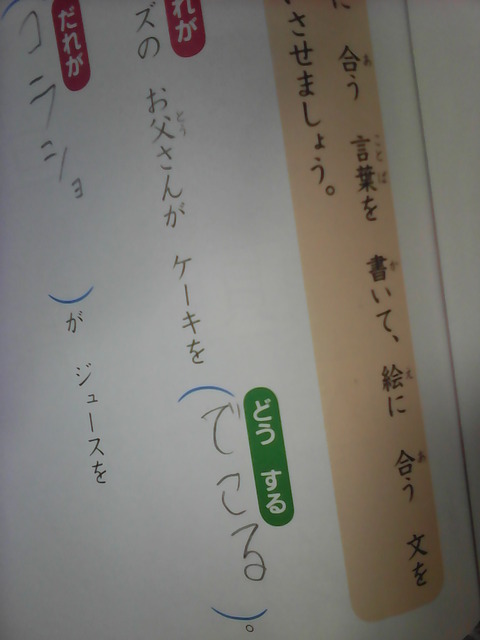 に 合う 言葉を 書いて、絵に 合う 文を
させましょう。
れが
ズの お父さんが ケーキを
どう する
(でこる)。
だれが
コラショ)が ジュースを